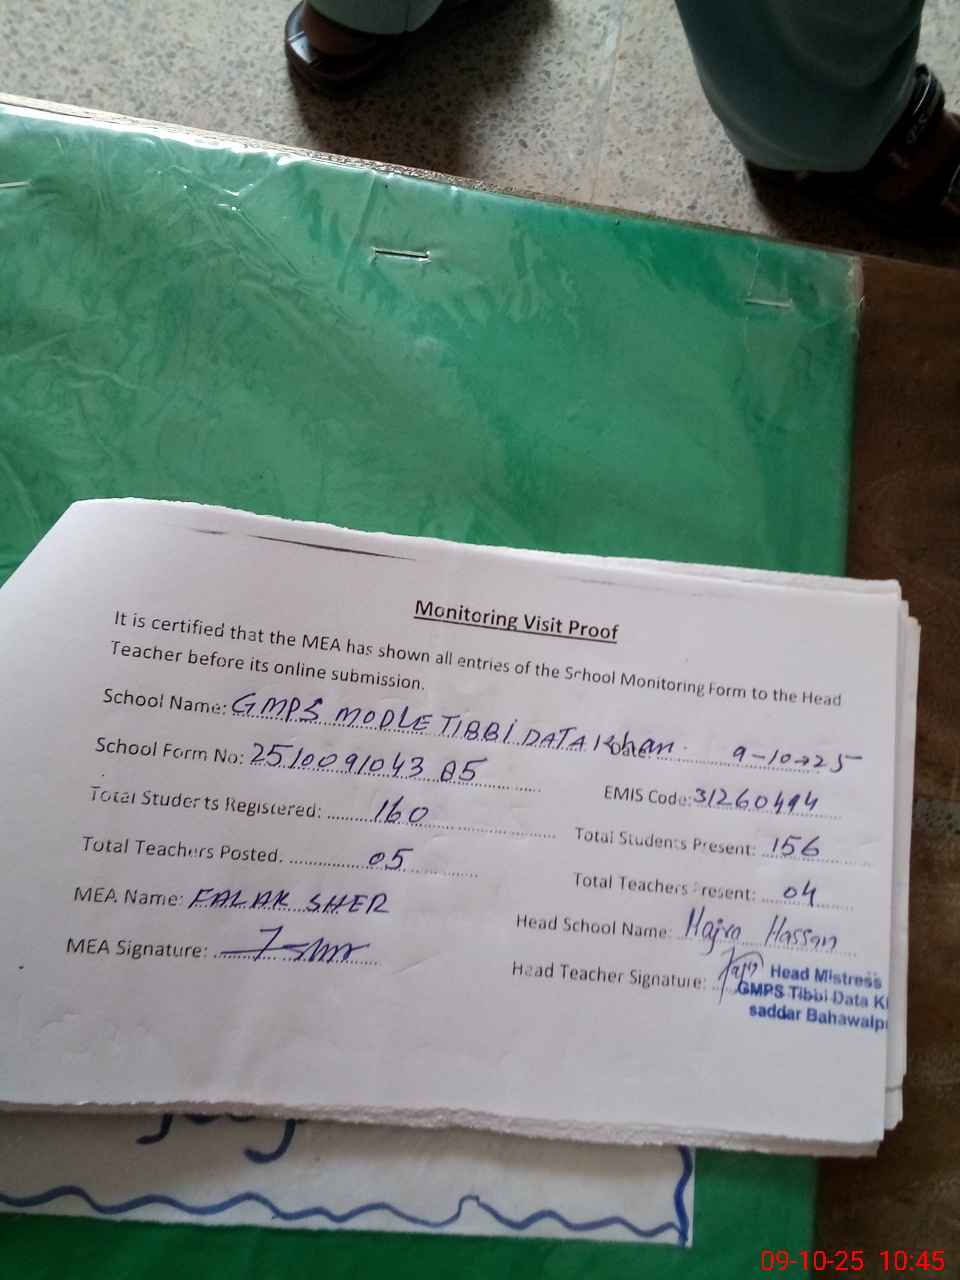 Monitoring Visit Proof
It is certified that the MEA has shown all entries of the School Monitoring Form to the Head
Teacher before its online submission.
School Name: GMPS MODLE TIBBI DATA Khan. Date: 9-10-25
School Form No: 2510091043 05 EMIS Code: 31260494
Total Students Registered: 160 Total Students Present: 156
Total Teachers Posted: 05 Total Teachers Present: 04
MEA Name: FALAK SHER Head School Name: Hajra Hassan
MEA Signature: Head Teacher Signature:
Head Mistress
GMPS Tibbi Data K
saddar Bahawalp
09-10-25 10:45